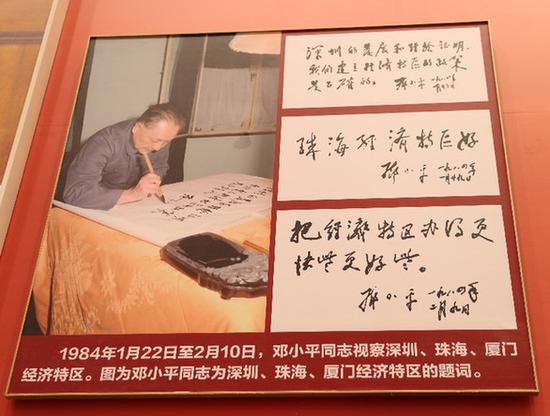 深圳的发展和经验证明，
我们建立经济特区的政策
是正确的。 邓小平 一九八四年
一月廿六日
珠海经济特区好
邓小平 一九八四年
一月廿九日
把经济特区办得更
快些更好些。
邓小平 一九八四年
二月九日
1984年1月22日至2月10日，邓小平同志视察深圳、珠海、厦门
经济特区。图为邓小平同志为深圳、珠海、厦门经济特区的题词。